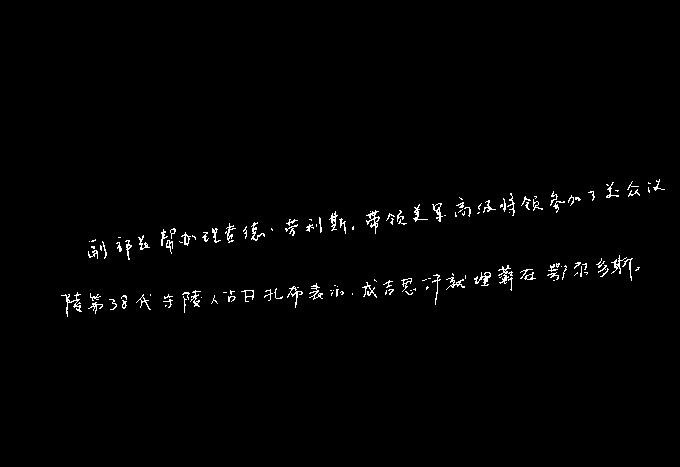 副部长帮办理查德·劳利斯,带领美军高级将领参加了这次会议
陵第38代守陵人古日扎布表示,成吉思汗就埋葬在鄂尔多斯。